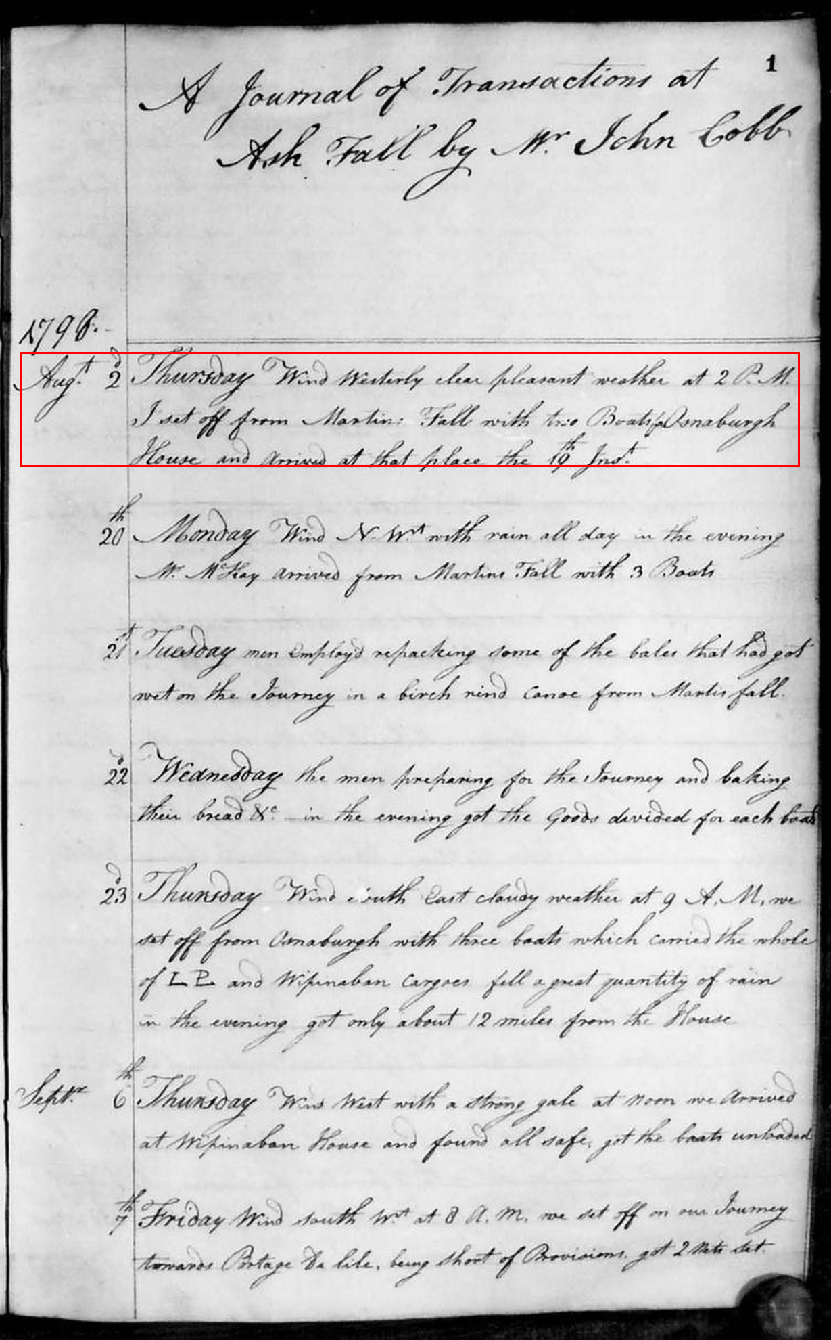 1
A Journal of Transactions at
Ash Fall by Mr John Cobb
1798.
Augt. 2d Thursday Wind Westerly clear pleasant weather at 2 P.M.
I set off from Martins Fall with two Boats Osnaburgh
House and arrived at that place the 19th Inst.
20th Monday Wind N. Wt with rain all day in the evening
Mr. McKay arrived from Martins Fall with 3 Boats
21st Tuesday men Employd repacking some of the bales that had got
wet on the Journey in a birch rind Canoe from Martis fall.
22d Wednesday the men preparing for the Journey and baking
their bread &c. in the evening got the Goods divided for each boat
23d Thursday Wind South East cloudy weather at 9 A.M. we
set off from Osnaburgh with three boats which carried the whole
of L P and Wipinaban Cargoes fell a great quantity of rain
in the evening got only about 12 miles from the House
Septr. 6th Thursday Wind West with a strong gale at noon we Arrived
at Wipinaban House and found all safe, got the boats unloaded
7th Friday Wind south Wt at 8 A.M. we set off on our Journey
towards Portage De lile, being short of Provisions, got 2 Nets set.